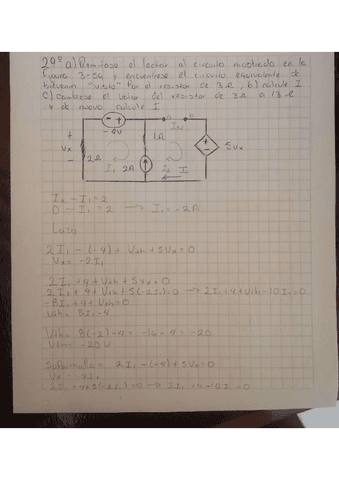 29º a) Remitase el lector al circuito mostrado en la
figura 3-59 y encuentrese el circuito equivalente de
thevenin "visto" por el resistor de 3Ω, b) calcule I
c) cambiese el valor del resistor de 3Ω a 13Ω
y de nuevo calcule I
- +
-4V
+
Vx
-
2Ω
I1
1Ω
2A
I2
I
+
-
5Vx
I2 - I1 = 2
0 - I1 = 2 → I1 = -2A
Lazo
2I1 - (-4) + Vth + 5Vx = 0
Vx = -2I1
2I1 + 4 + Vth + 5Vx = 0
2I1 + 4 + Vth + 5(-2I1) = 0 → 2I1 + 4 + Vth - 10I1 = 0
-8I1 + 4 + Vth = 0
Vth = 8I1 - 4
Vth = 8(-2) - 4 = -16 - 4 = -20
Vth = -20V
Supermalla: 2I1 - (-4) + 5Vx = 0
Vx = -2I1
2I1 + 4 + 5(-2I1) = 0 → 2I1 + 4 - 10I1 = 0